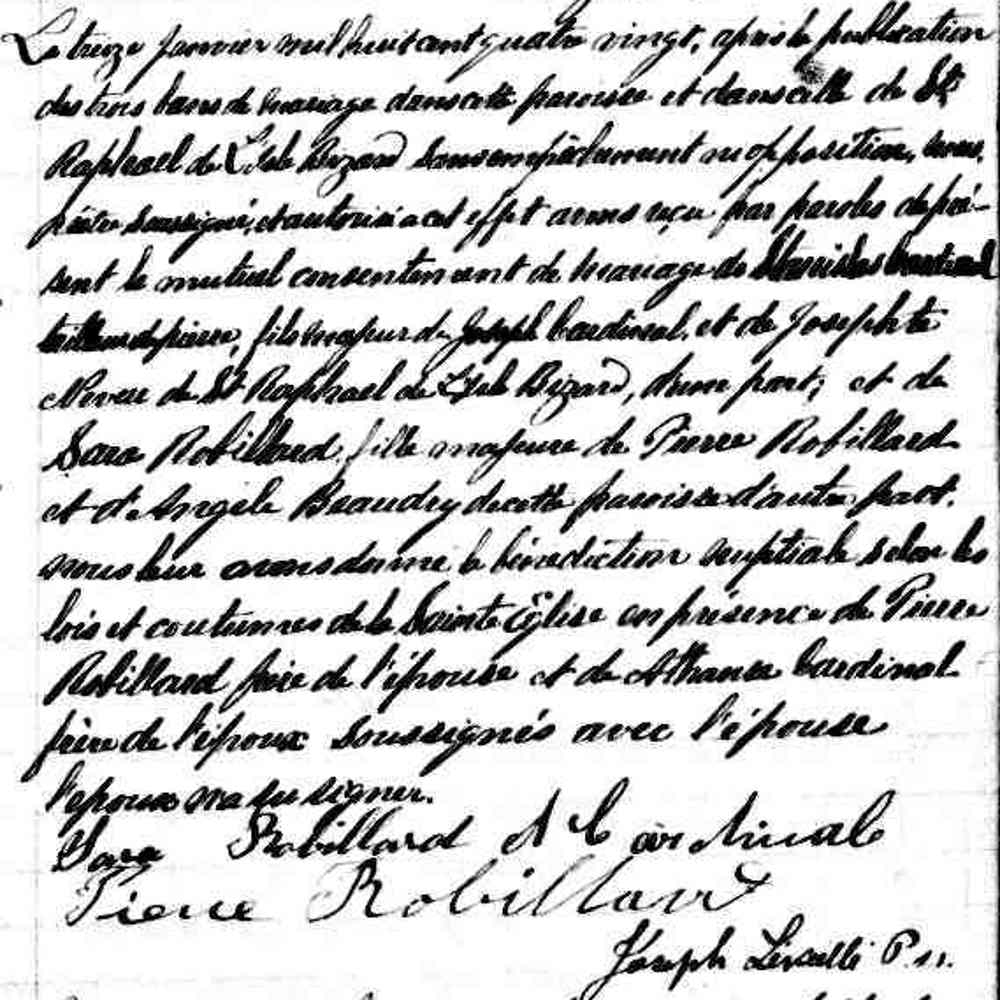 Le treize janvier mil huit cent quatre vingt, après la publication
des trois bans de mariage dans cette paroisse et dans celle de St
Raphael de L'Isle Bizard sans empêchement ni opposition, nous,
prêtre soussigné, et autorisé a cet effet avons reçu par paroles de pré-
sent le mutuel consentement de mariage de Stanislas Cardinal
tailleur de pierre, fils majeur de Joseph Cardinal, et de Josephte
Neveu de St Raphael de L'Isle Bizard, d'une part; et de
Sara Robillard, fille majeure de Pierre Robillard
et d'Angèle Beaudry de cette paroisse d'autre part.
nous leur avons donné la bénédiction nuptiale selon les
lois et coutumes de la Sainte Eglise en présence de Pierre
Robillard frère de l'épouse et de Athanase Cardinal
frère de l'époux soussignés avec l'épouse
l'époux n'a su signer.
Sara Robillard A Cardinal
Pierre Robillard
Joseph P.